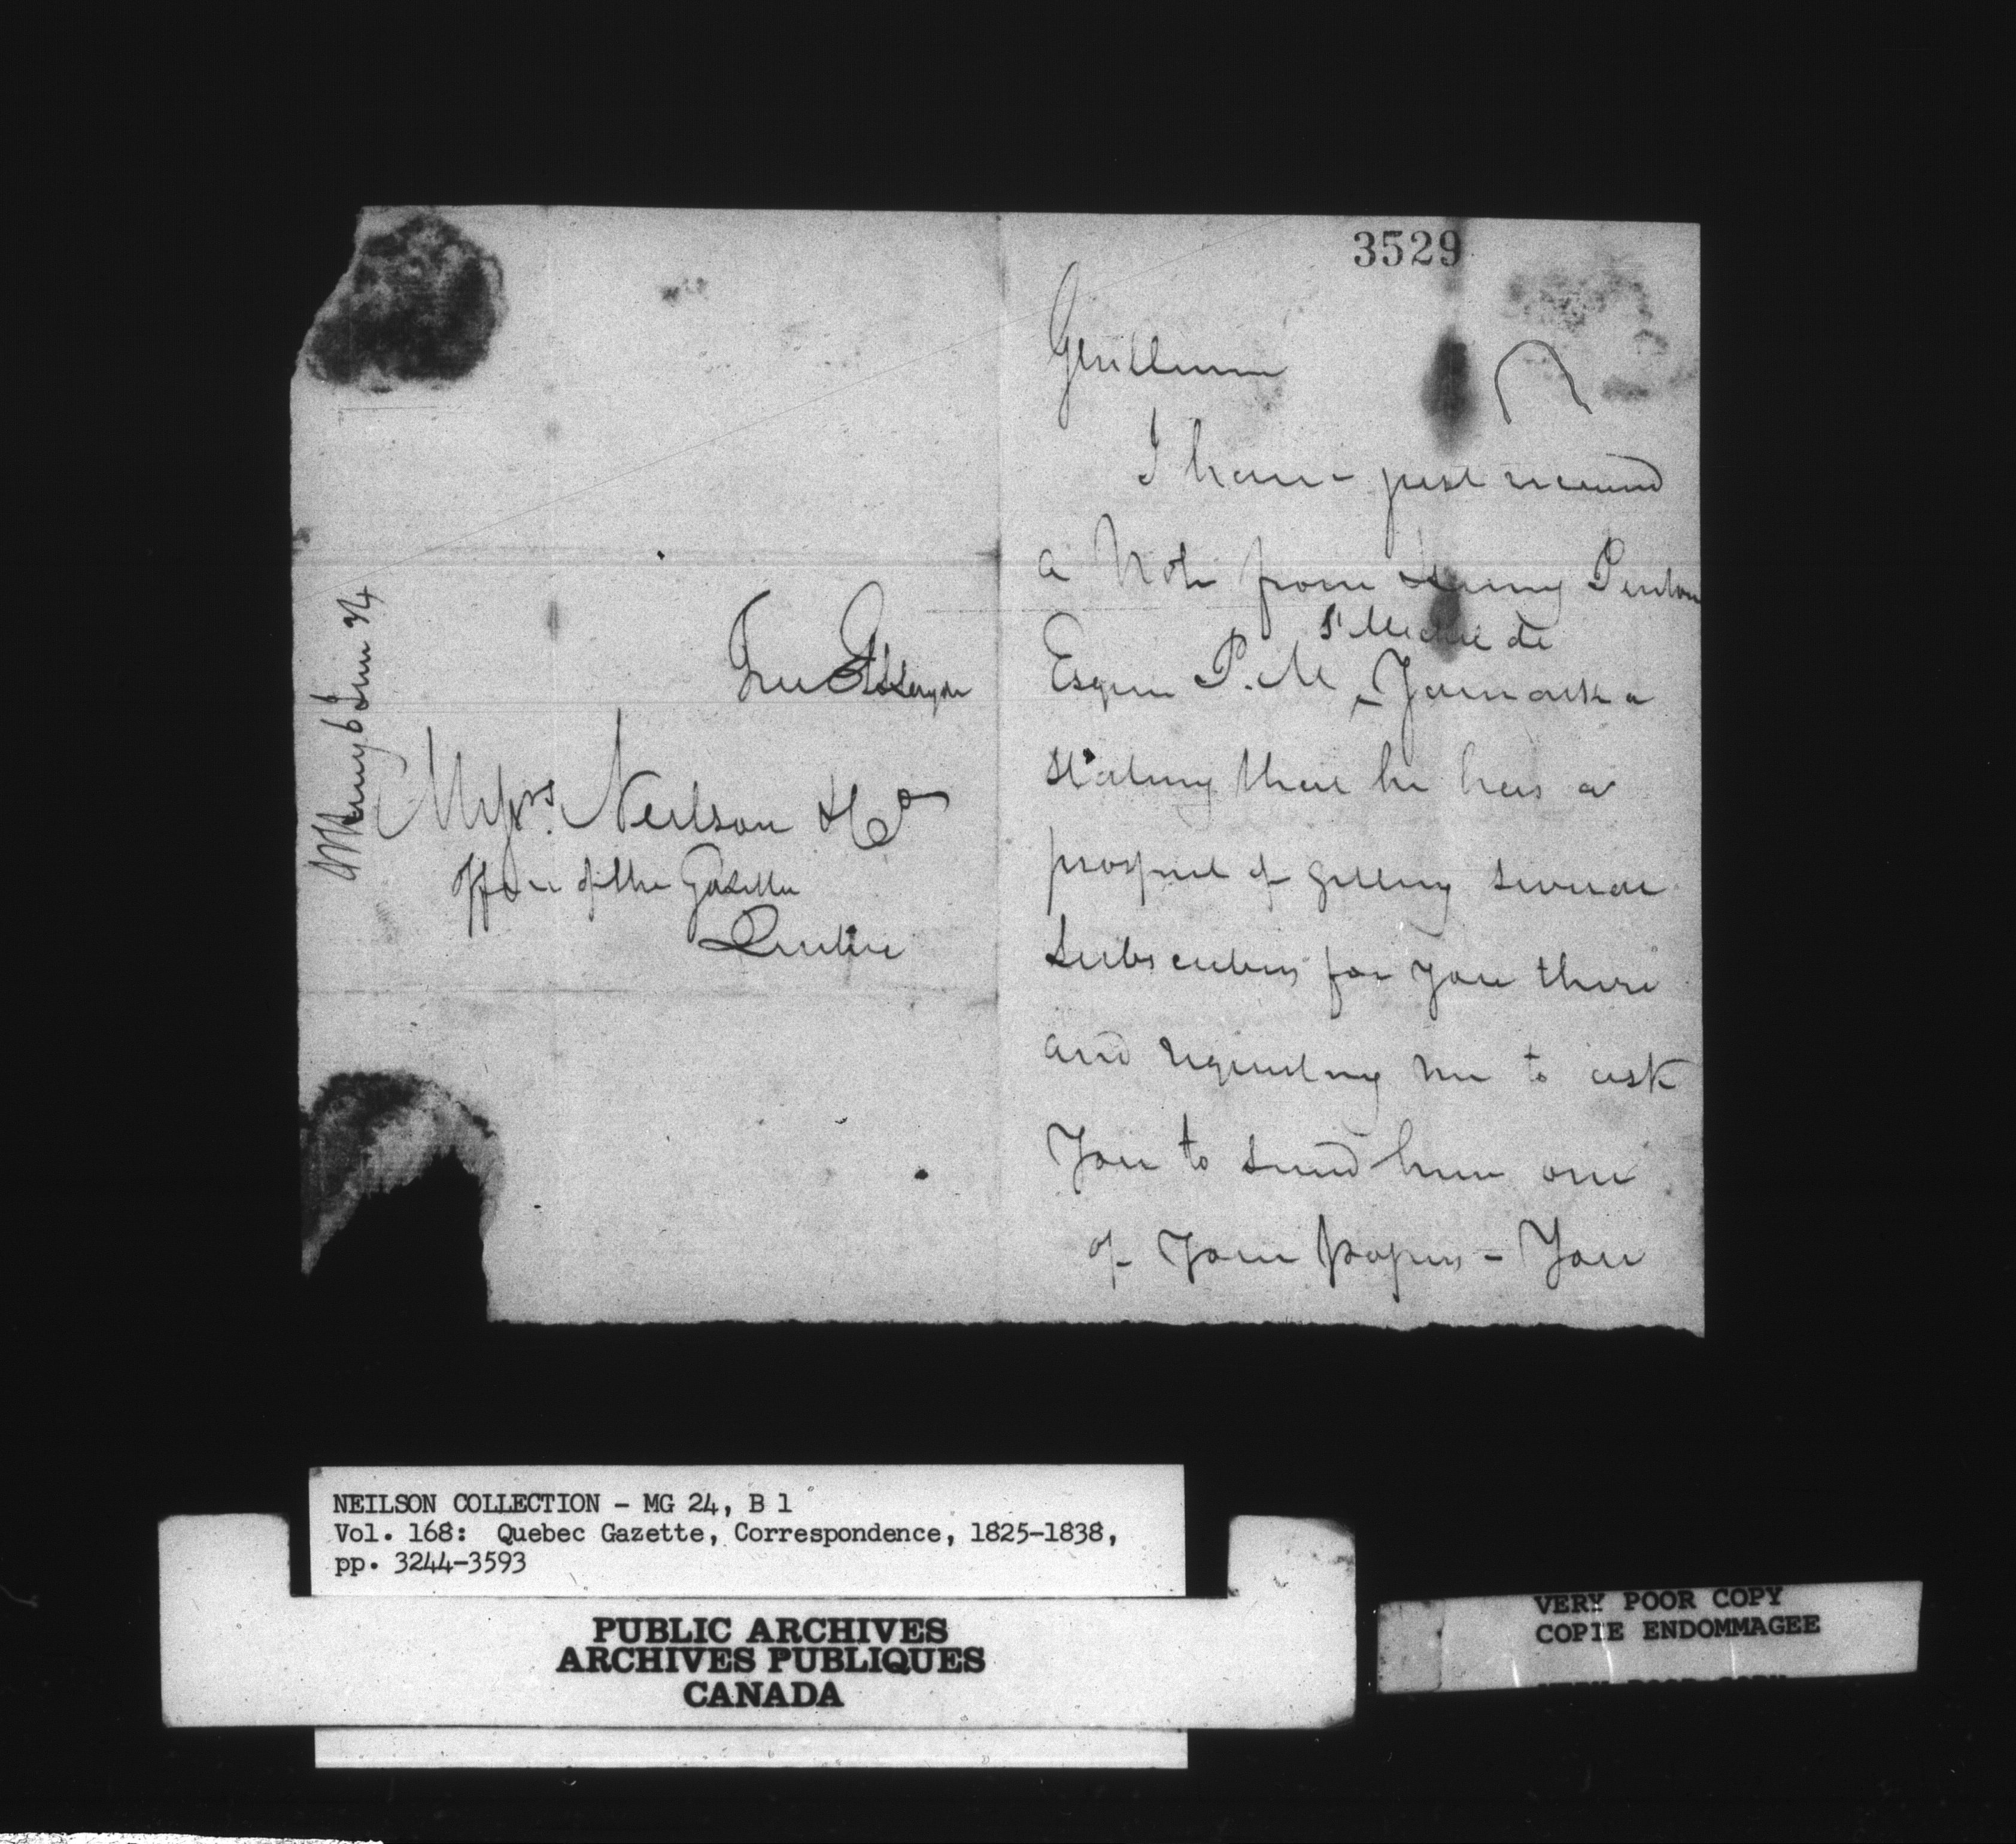 3529
Gentlemen
I have just received
a Note from Henry Penton
Esquire P. M
St Michel de
Yamaska
stating that he has a
prospect of getting several
Subscribers for you there
and requesting me to ask
You to send him one
of Your papers - You
Free
Messrs. Neilson & Co
Office of the Gazette
Quebec
NEILSON COLLECTION - MG 24, B 1
Vol. 168: Quebec Gazette, Correspondence, 1825-1838,
pp. 3244-3593
PUBLIC ARCHIVES
ARCHIVES PUBLIQUES
CANADA
VERY POOR COPY
COPIE ENDOMMAGEE